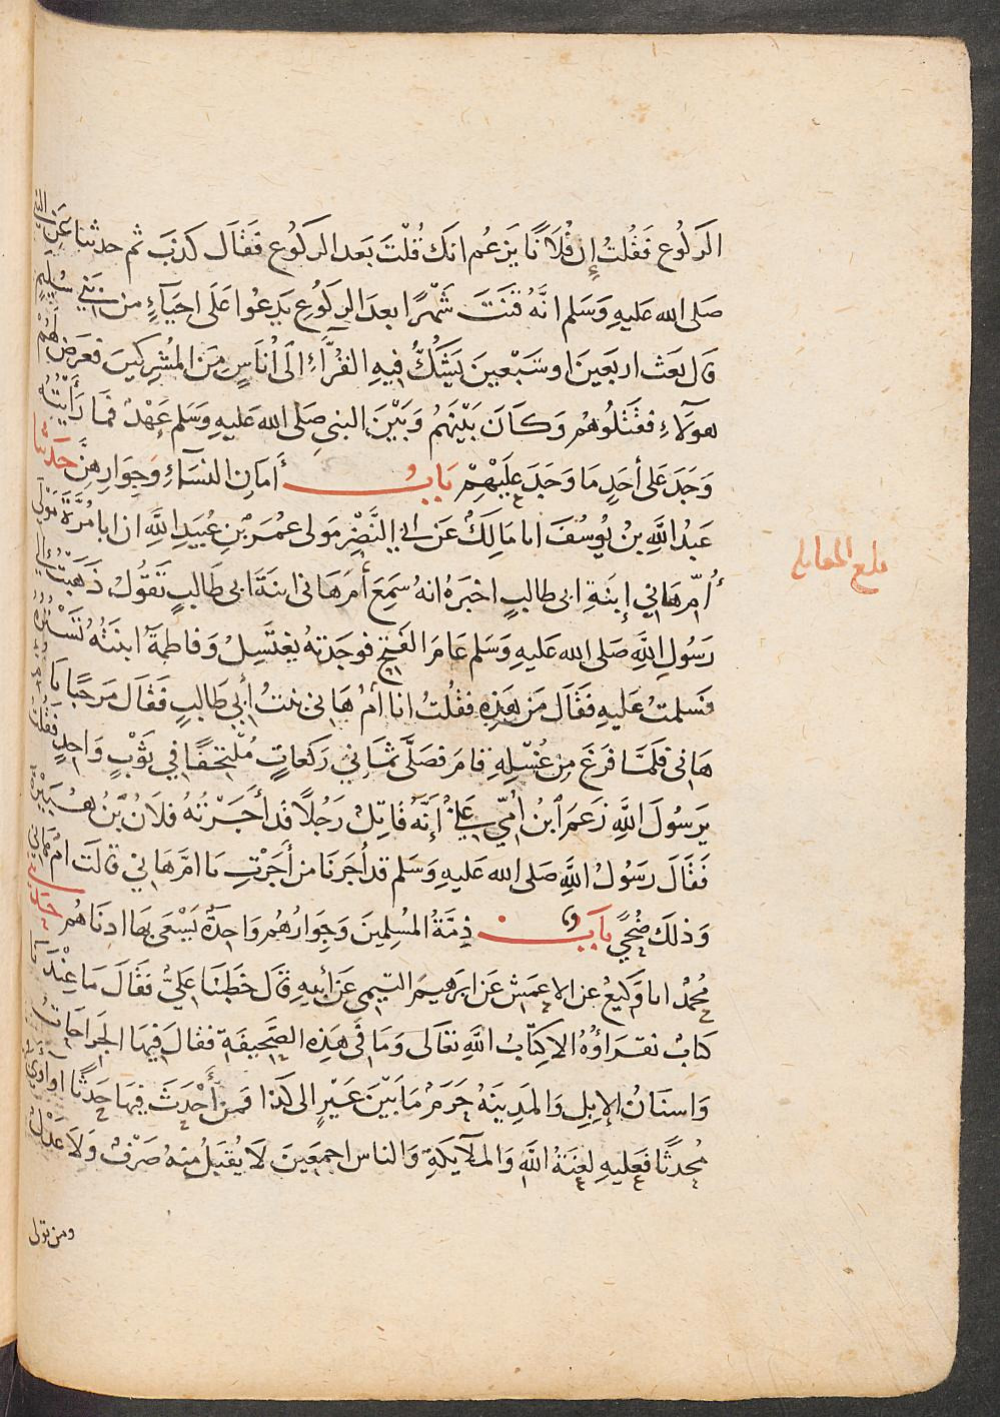 الركُوع فَقُلتُ إِن فُلَانًا يَزعُم انكَ قُلْتَ بَعد الركُوع فَقَالَ كَذبَ ثم حدثنا عَنِ النبي
صَلى الله عَليهِ وَسَلم انَّهُ قَنَتَ شَهْرًا بعدَ الركُوعِ يَدعُوا عَلَى احيَآءٍ من بَنِي سُلَيمٍ
قَال بَعَث اربَعينَ او سَبْعِينَ يَشُكُّ فِيهِ القُرَّاءِ الَى أُنَاسٍ مِنَ المُشرِكينَ فَعَرَضَ لَهُمْ
هولَاءِ فقَتَلُوهُمْ وَكَانَ بَيْنَهُمُ وَبَيْنَ النبي صَلى الله عَليهِ وَسَلم عَهْدٌ فمَا رَأَيْتُهُ
وَجَدَ عَلى أحَدٍ مَا وَجَدَ عَلَيْهِمْ بَابُ أَمَانِ النسَآءِ وَجِوَارِهنَّ حَدثنا
عَبدُ اللَّهِ بنُ يُوسُفَ انا مَالِكٌ عَن ابي النَّضْرِ مَولى عُمَرَ بْنِ عُبَيدِ اللَّهِ ان ابا مُرَّةَ مَوْلَى
أُمِّ هَانِي إبنَةِ ابى طالبٍ اخبَرَهُ انهُ سَمِعَ أُمَّ هَانى ابنَةَ ابى طَالبٍ تَقُولُ ذَهَبْتُ الى
رَسُولِ اللَّهِ صَلى الله عَليهِ وَسَلم عَامَ الفَتحِ فوجَدتهُ يغتَسِلُ وَفَاطمَةُ ابنَتُهُ تَسْتُرُهُ
فسَلمتُ عَليهِ فقَالَ مَن هَذِهِ فقُلتُ انا أمُ هَانى بنتُ أَبِي طَالبٍ فقَالَ مَرحَبًا بامِّ
هَانى فلَمَّا فرَغَ مِن غُسْلِهِ قَامَ فصَلَّى ثمَانِي رَكعَاتٍ مُلْتَحِفًا فِي ثَوْبٍ وَاحِدٍ فَقُلتُ
يَرسُولَ اللَّهِ زَعَمَ ابنُ أُمِّي عَليٌ أنَّهُ قَاتِلٌ رَجُلًا قَد أَجَرْتُهُ فُلَانُ بْنُ هُبَيْرَةَ
فَقَالَ رَسُولُ اللَّهِ صَلى الله عَليهِ وَسَلم قد أَجَرنَا من أجَرْتِ يَا امَّ هَانِي قالَت امُ هَانِي
وَذلكَ ضُحًي بَابُ ذِمَّةُ المُسلِمِينَ وَجِوَارُهُم وَاحِدَةٌ يَسْعَى بهَا ادنَاهُم حدثني
مُحمَّدٌ انا وَكِيعٌ عن الاعمَشِ عَن ابرَهيمَ التيمى عَن أَبيهِ قَالَ خَطَبَنَا عَلِيٌّ فقَالَ مَا عِنْدَنَا
كتابٌ نقرَاؤُهُ الا كِتَابُ اللَّهِ تعَالَى وَمَا فى هَذِهِ الصَّحِيفَةِ فقالَ فِيهَا الجرَاحَاتُ
وَاسنَانُ الإبِلِ وَالمدِينَهُ حَرَمٌ مَا بَيْنَ عَيْرٍ الى كَذَا فمَن أحْدَثَ فِيهَا حَدثًا او اوَى
مُحدثًا فعَليهِ لعنَةُ اللَّهِ وَالملَايكَةِ وَالناس اجمَعِينَ لَا يُقبَلُ مِنهُ صَرْفٌ وَلَا عَدْلٌ
ومن تولى
بلغ المقابله